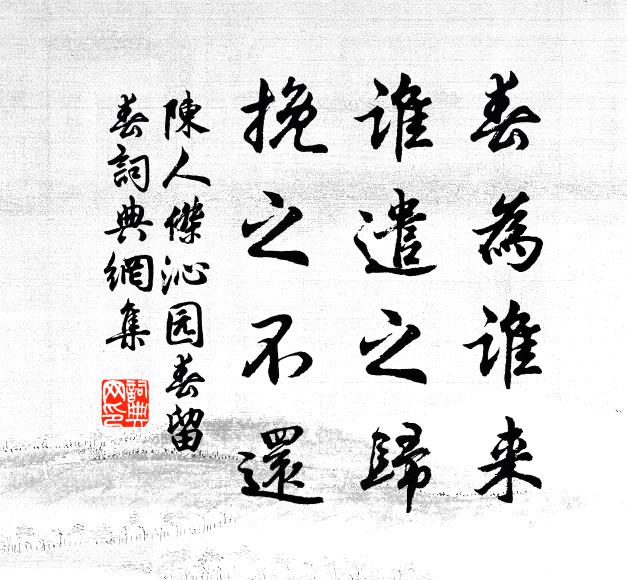 春為谁来
谁遣之歸
挽之不還
陳人傑沁园春留
春詞典網集
詞典
网印